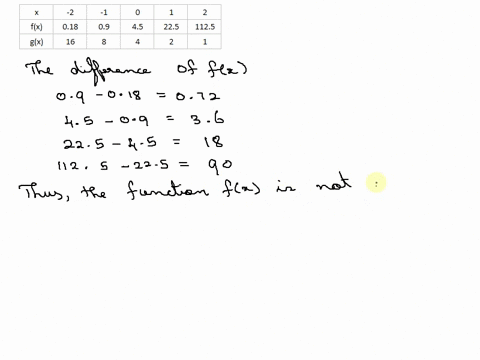 x -2 -1 0 1 2
f(x) 0.18 0.9 4.5 22.5 112.5
g(x) 16 8 4 2 1
The difference of f(x)
0.9 - 0.18 = 0.72
4.5 - 0.9 = 3.6
22.5 - 4.5 = 18
112.5 - 22.5 = 90
Thus, the function f(x) is not